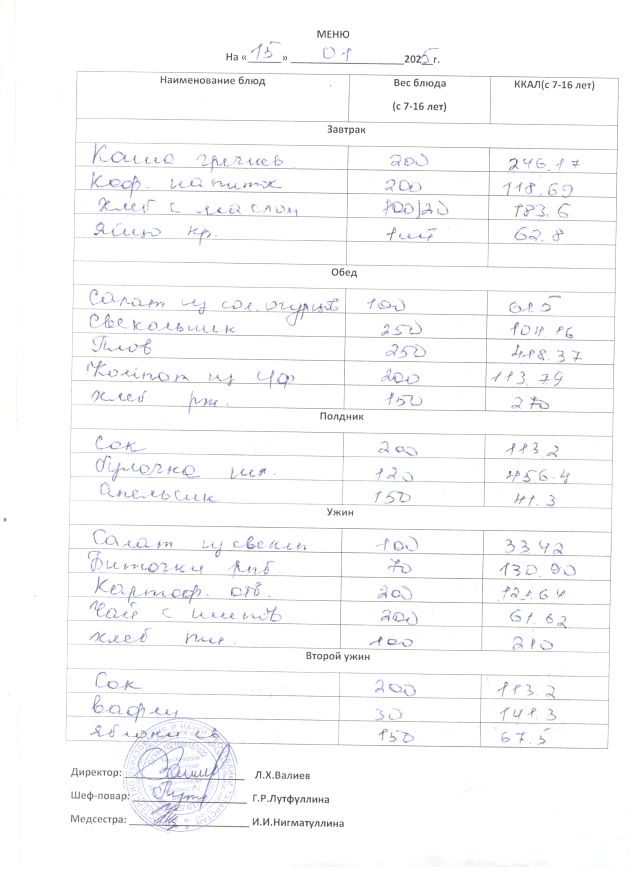 МЕНЮ
На «15» 01 2025г.
Наименование блюд Вес блюда (с 7-16 лет) ККАЛ(с 7-16 лет)
Завтрак
Каша гречнев. 200 246.17
Коф. напиток 200 118.69
Хлеб с маслом 100/20 183.6
Яйцо кр. 1шт 62.8
Обед
Салат из сол. огурцов 100 61.5
Свекольник 250 104.16
Плов 250 418.37
Компот из ЧФ 200 113.79
Хлеб рж. 150 270
Полдник
Сок 200 113.2
Булочка шк. 120 456.4
Апельсин 150 41.3
Ужин
Салат из свеклы 100 33.42
Биточки рыб 70 130.90
Картоф. отв. 200 121.64
Чай с 200 61.62
Хлеб пш. 100 210
Второй ужин
Сок 200 113.2
Вафли 30 141.3
Яблоки св 150 67.5
Директор: Л.Х.Валиев
Шеф-повар: Г.Р.Лутфуллина
Медсестра: И.И.Нигматуллина